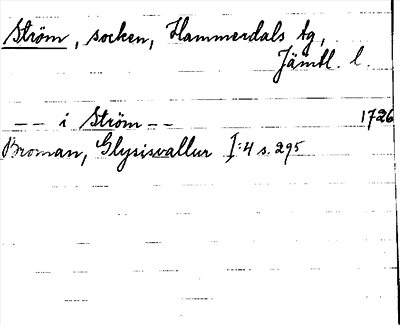 Ström, socken, Hammerdals tg,
Jämtl. l.
-- i Ström -- 1726
Broman, Glysisvallur I:4 s. 295